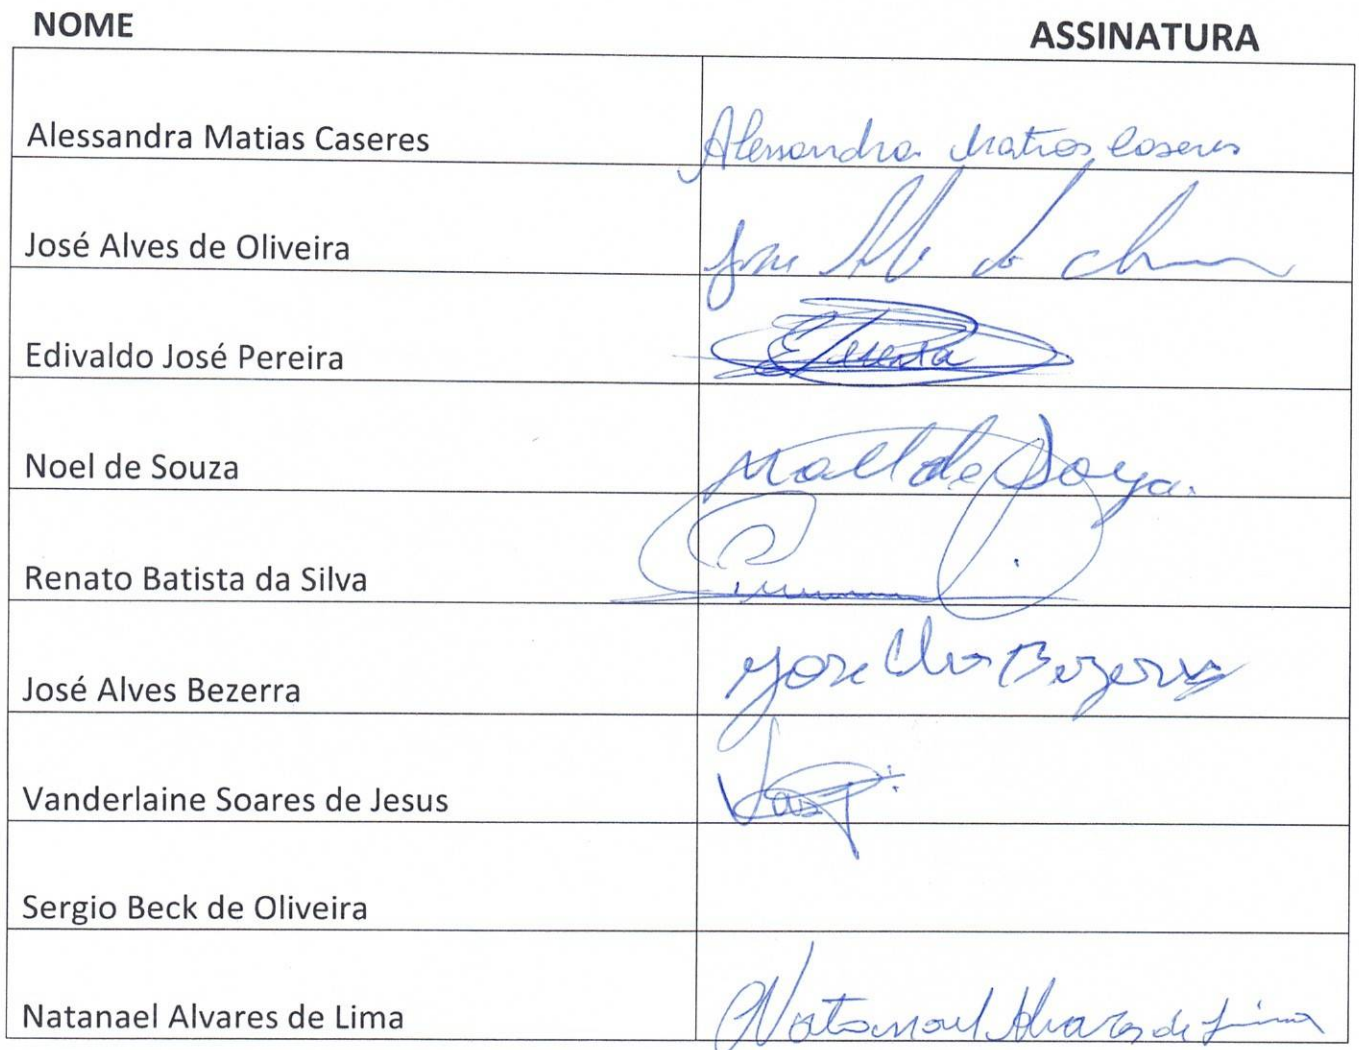 NOME ASSINATURA
Alessandra Matias Caseres Alessandra Matias Caseres
José Alves de Oliveira Jose
Edivaldo José Pereira
Noel de Souza Noel de Souza
Renato Batista da Silva
José Alves Bezerra Jose Alves Bezerra
Vanderlaine Soares de Jesus
Sergio Beck de Oliveira
Natanael Alvares de Lima Natanael Alvares de Lima